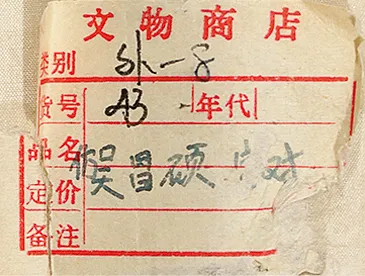 文物商店
类别 外一8
货号 年代
品名 吴昌硕 对
定价
备注